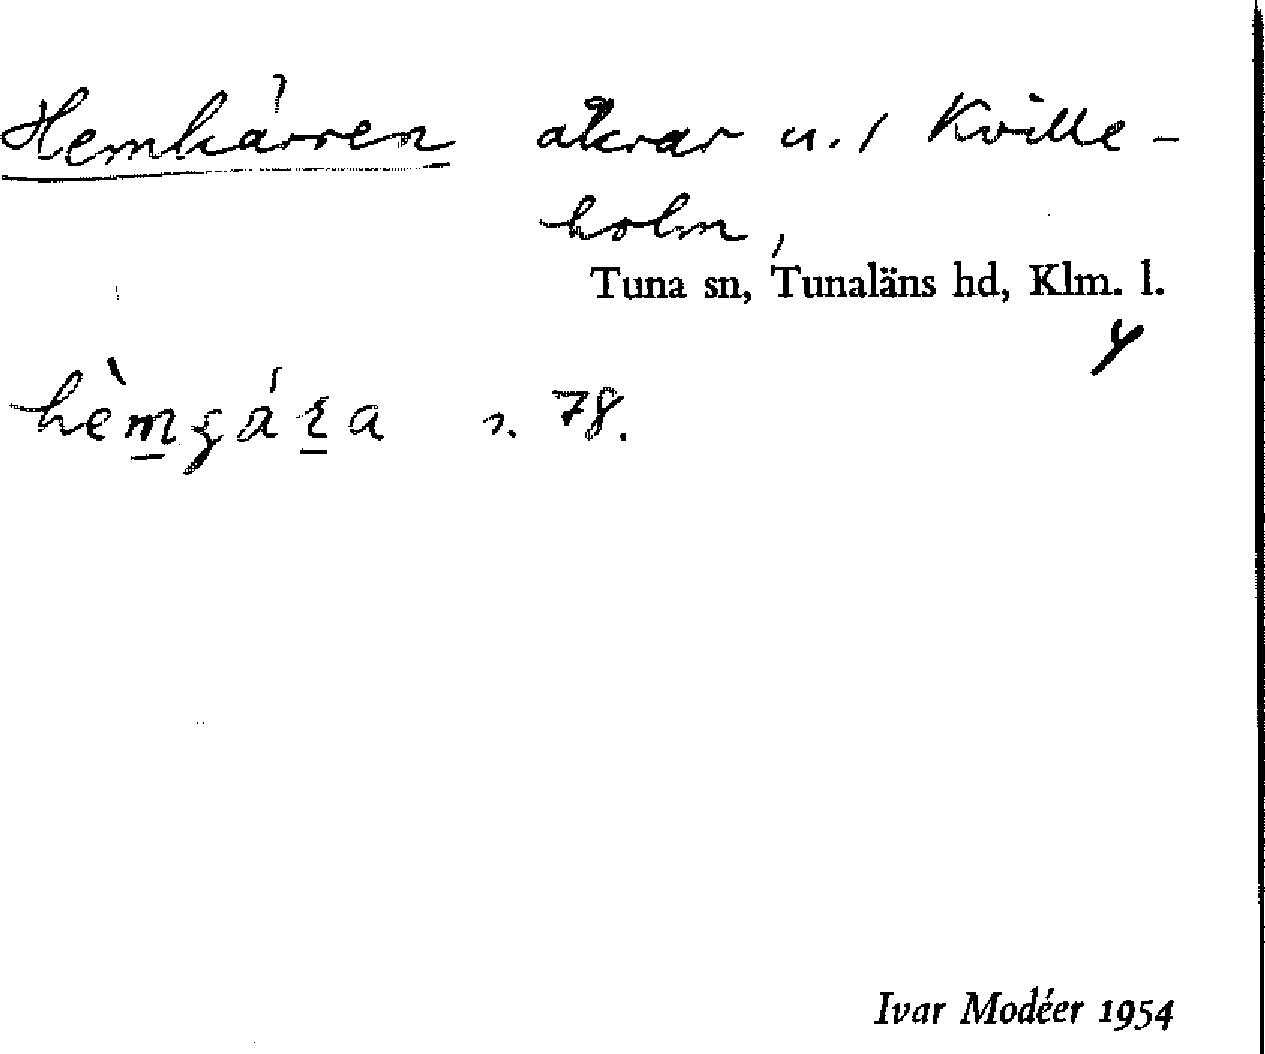 Hemkärren åkrar u. 1 Kville-
holm,
Tuna sn, Tunaläns hd, Klm. l.
s. 78.
Ivar Modéer 1954